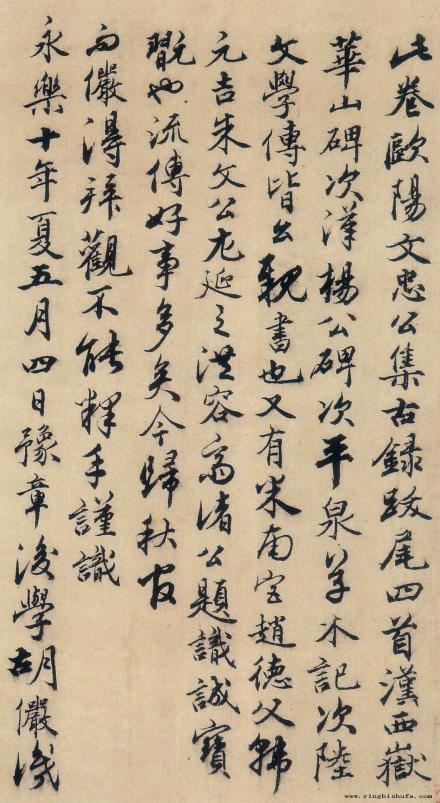 此卷歐陽文忠公集古錄跋尾四首漢西嶽
華山碑次漢楊公碑次平泉草木記次陸
文學傳皆公親書也又有米南宮趙德父韓
元吉朱文公尤延之洪容齋諸公題識誠寶
翫也流傳好事多矣今歸秋官
而儼得拜觀不能釋手謹識
永樂十年夏五月四日豫章後學胡儼識
www.yingbishufa.com